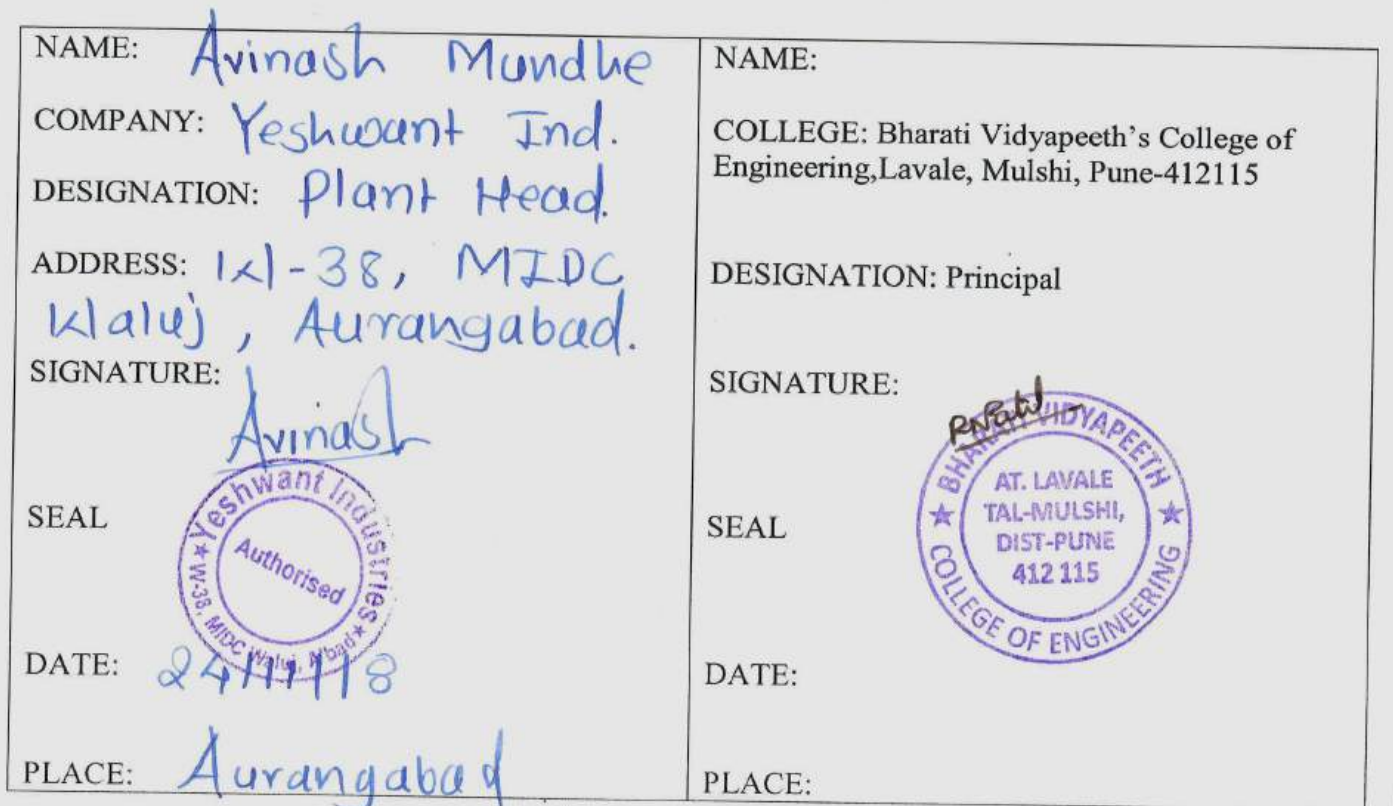 NAME: Avinash Mundhe
COMPANY: Yeshwant Ind.
DESIGNATION: Plant Head.
ADDRESS: W-38, MIDC
Waluj, Aurangabad.
SIGNATURE:
Avinash
SEAL
Yeshwant Industries
Authorised
W-38, MIDC Waluj, A'bad
DATE: 24/11/18
PLACE: Aurangabad
NAME:
COLLEGE: Bharati Vidyapeeth's College of
Engineering,Lavale, Mulshi, Pune-412115
DESIGNATION: Principal
SIGNATURE:
RNPatil
SEAL
BHARATI VIDYAPEETH
AT. LAVALE
TAL-MULSHI,
DIST-PUNE
412 115
COLLEGE OF ENGINEERING
DATE:
PLACE: